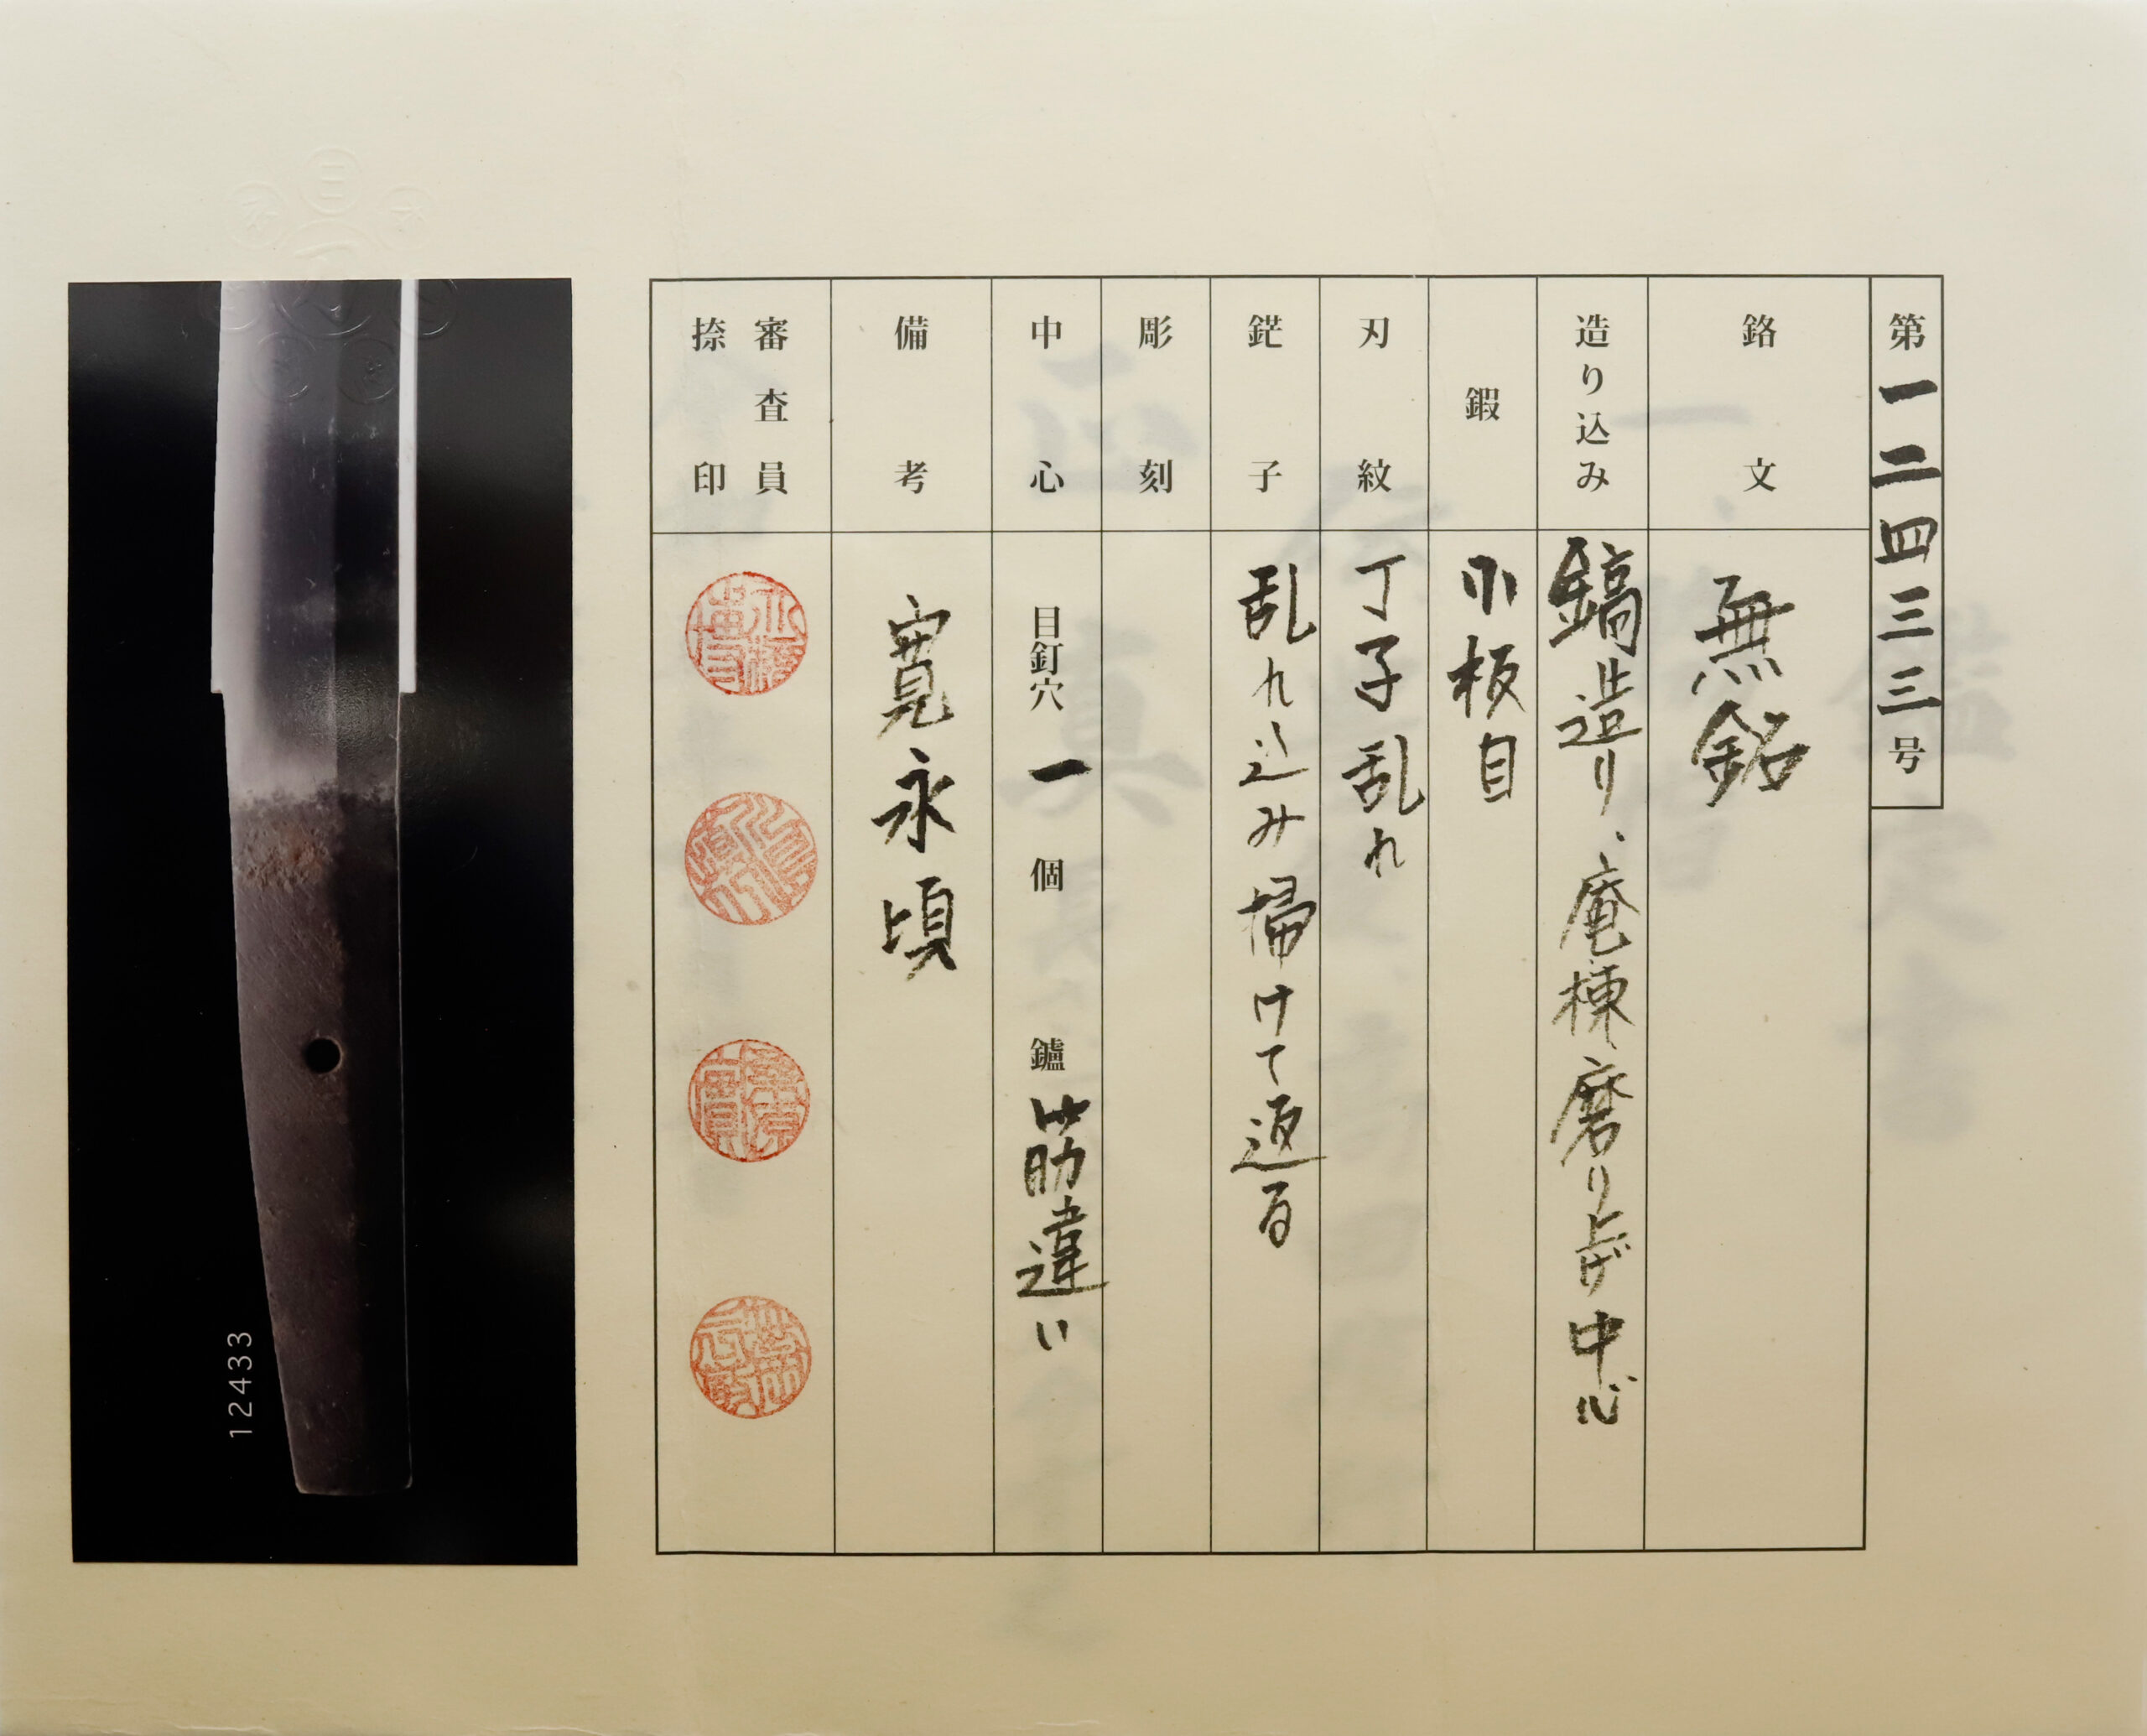 第一二四三三号
銘文
無銘
造り込み
鎬造り、庵棟磨り上げ中心
鍜
小板目
刃紋
丁子乱れ
鋩子
乱れ込み掃けて返る
彫刻
中心
目釘穴 一 個 鑢 筋違い
備考
寛永頃
審査員
捺印
12433